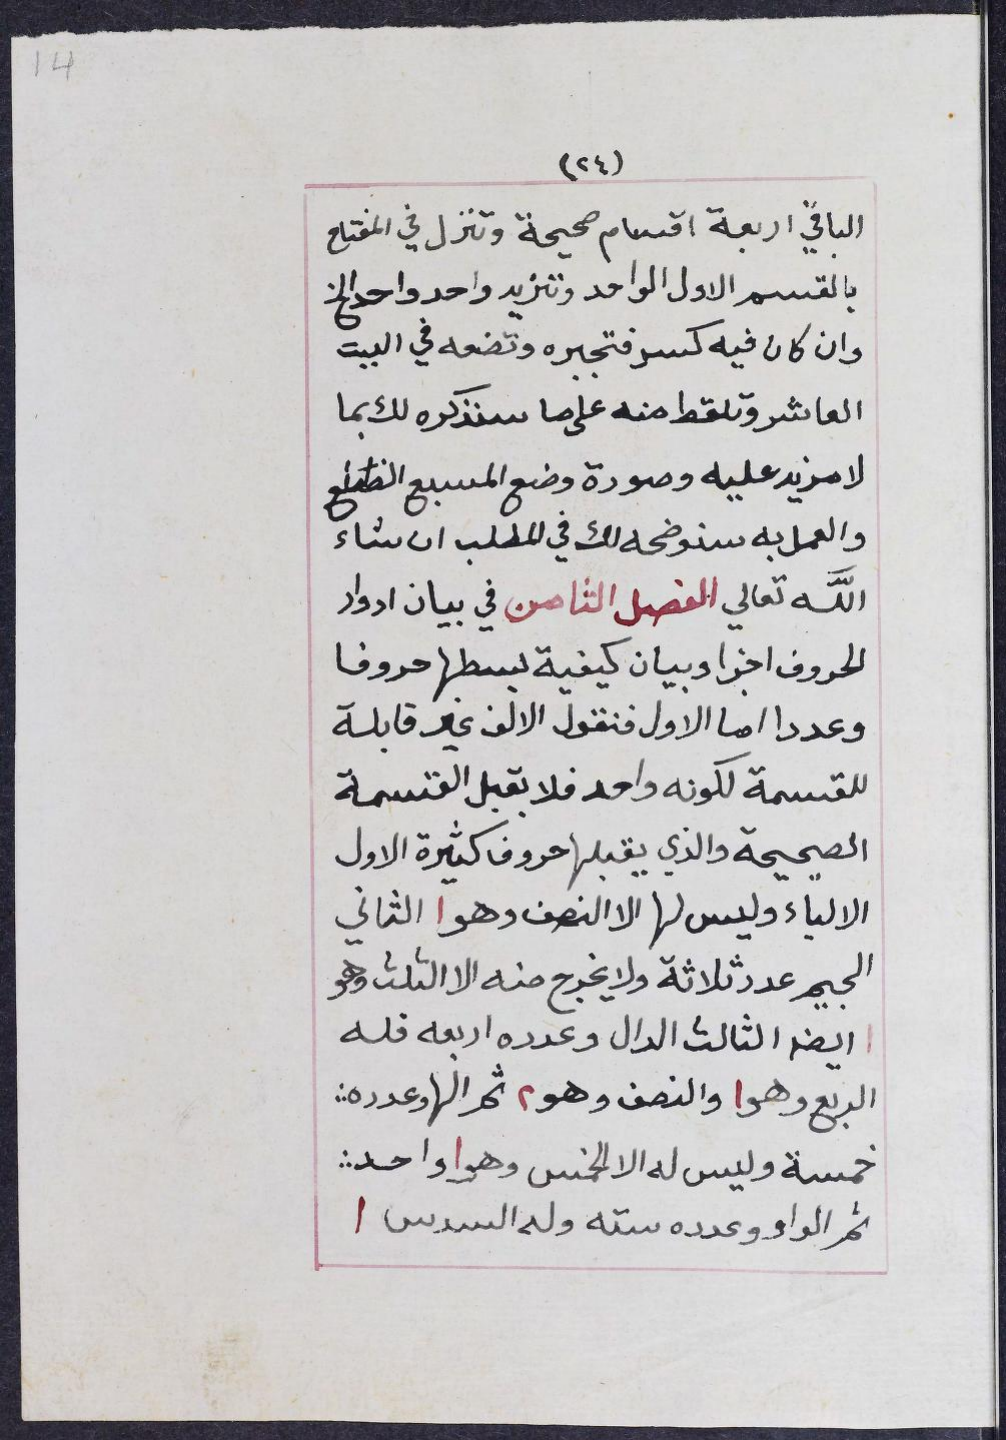 14
(٢٤)
الباقي اربعة اقسام صحيحة وتنزل في المفتاح
بالقسم الاول الواحد وتزيد واحد واحد الخ
وان كان فيه كسر فتجبره وتضعه في البيت
العاشر وتلقط منه على ما سنذكره لك بما
لا مزيد عليه وصورة وضع المسبع
والعمل به سنوضحه لك في المطلب ان شاء
الله تعالي الفصل الثامن في بيان ادوار
الحروف اجزا وبيان كيفية بسطها حروفا
وعددا اما الاول فنقول الالف غير قابلة
للقسمة لكونه واحد فلا يقبل القسمة
الصحيحة والذي يقبلها حروفا كثيرة الاول
الالباء وليس لها الا النصف وهو ا الثاني
الجيم عدد ثلاثة ولا يخرج منه الا الثلث وهو
ا ايضا الثالث الدال وعدده اربعه فله
الربع وهو ا والنصف وهو ٢ ثم الها وعدده
خمسة وليس له الا الخمس وهو ا واحد
ثم الواو وعدده سته وله السدس ا